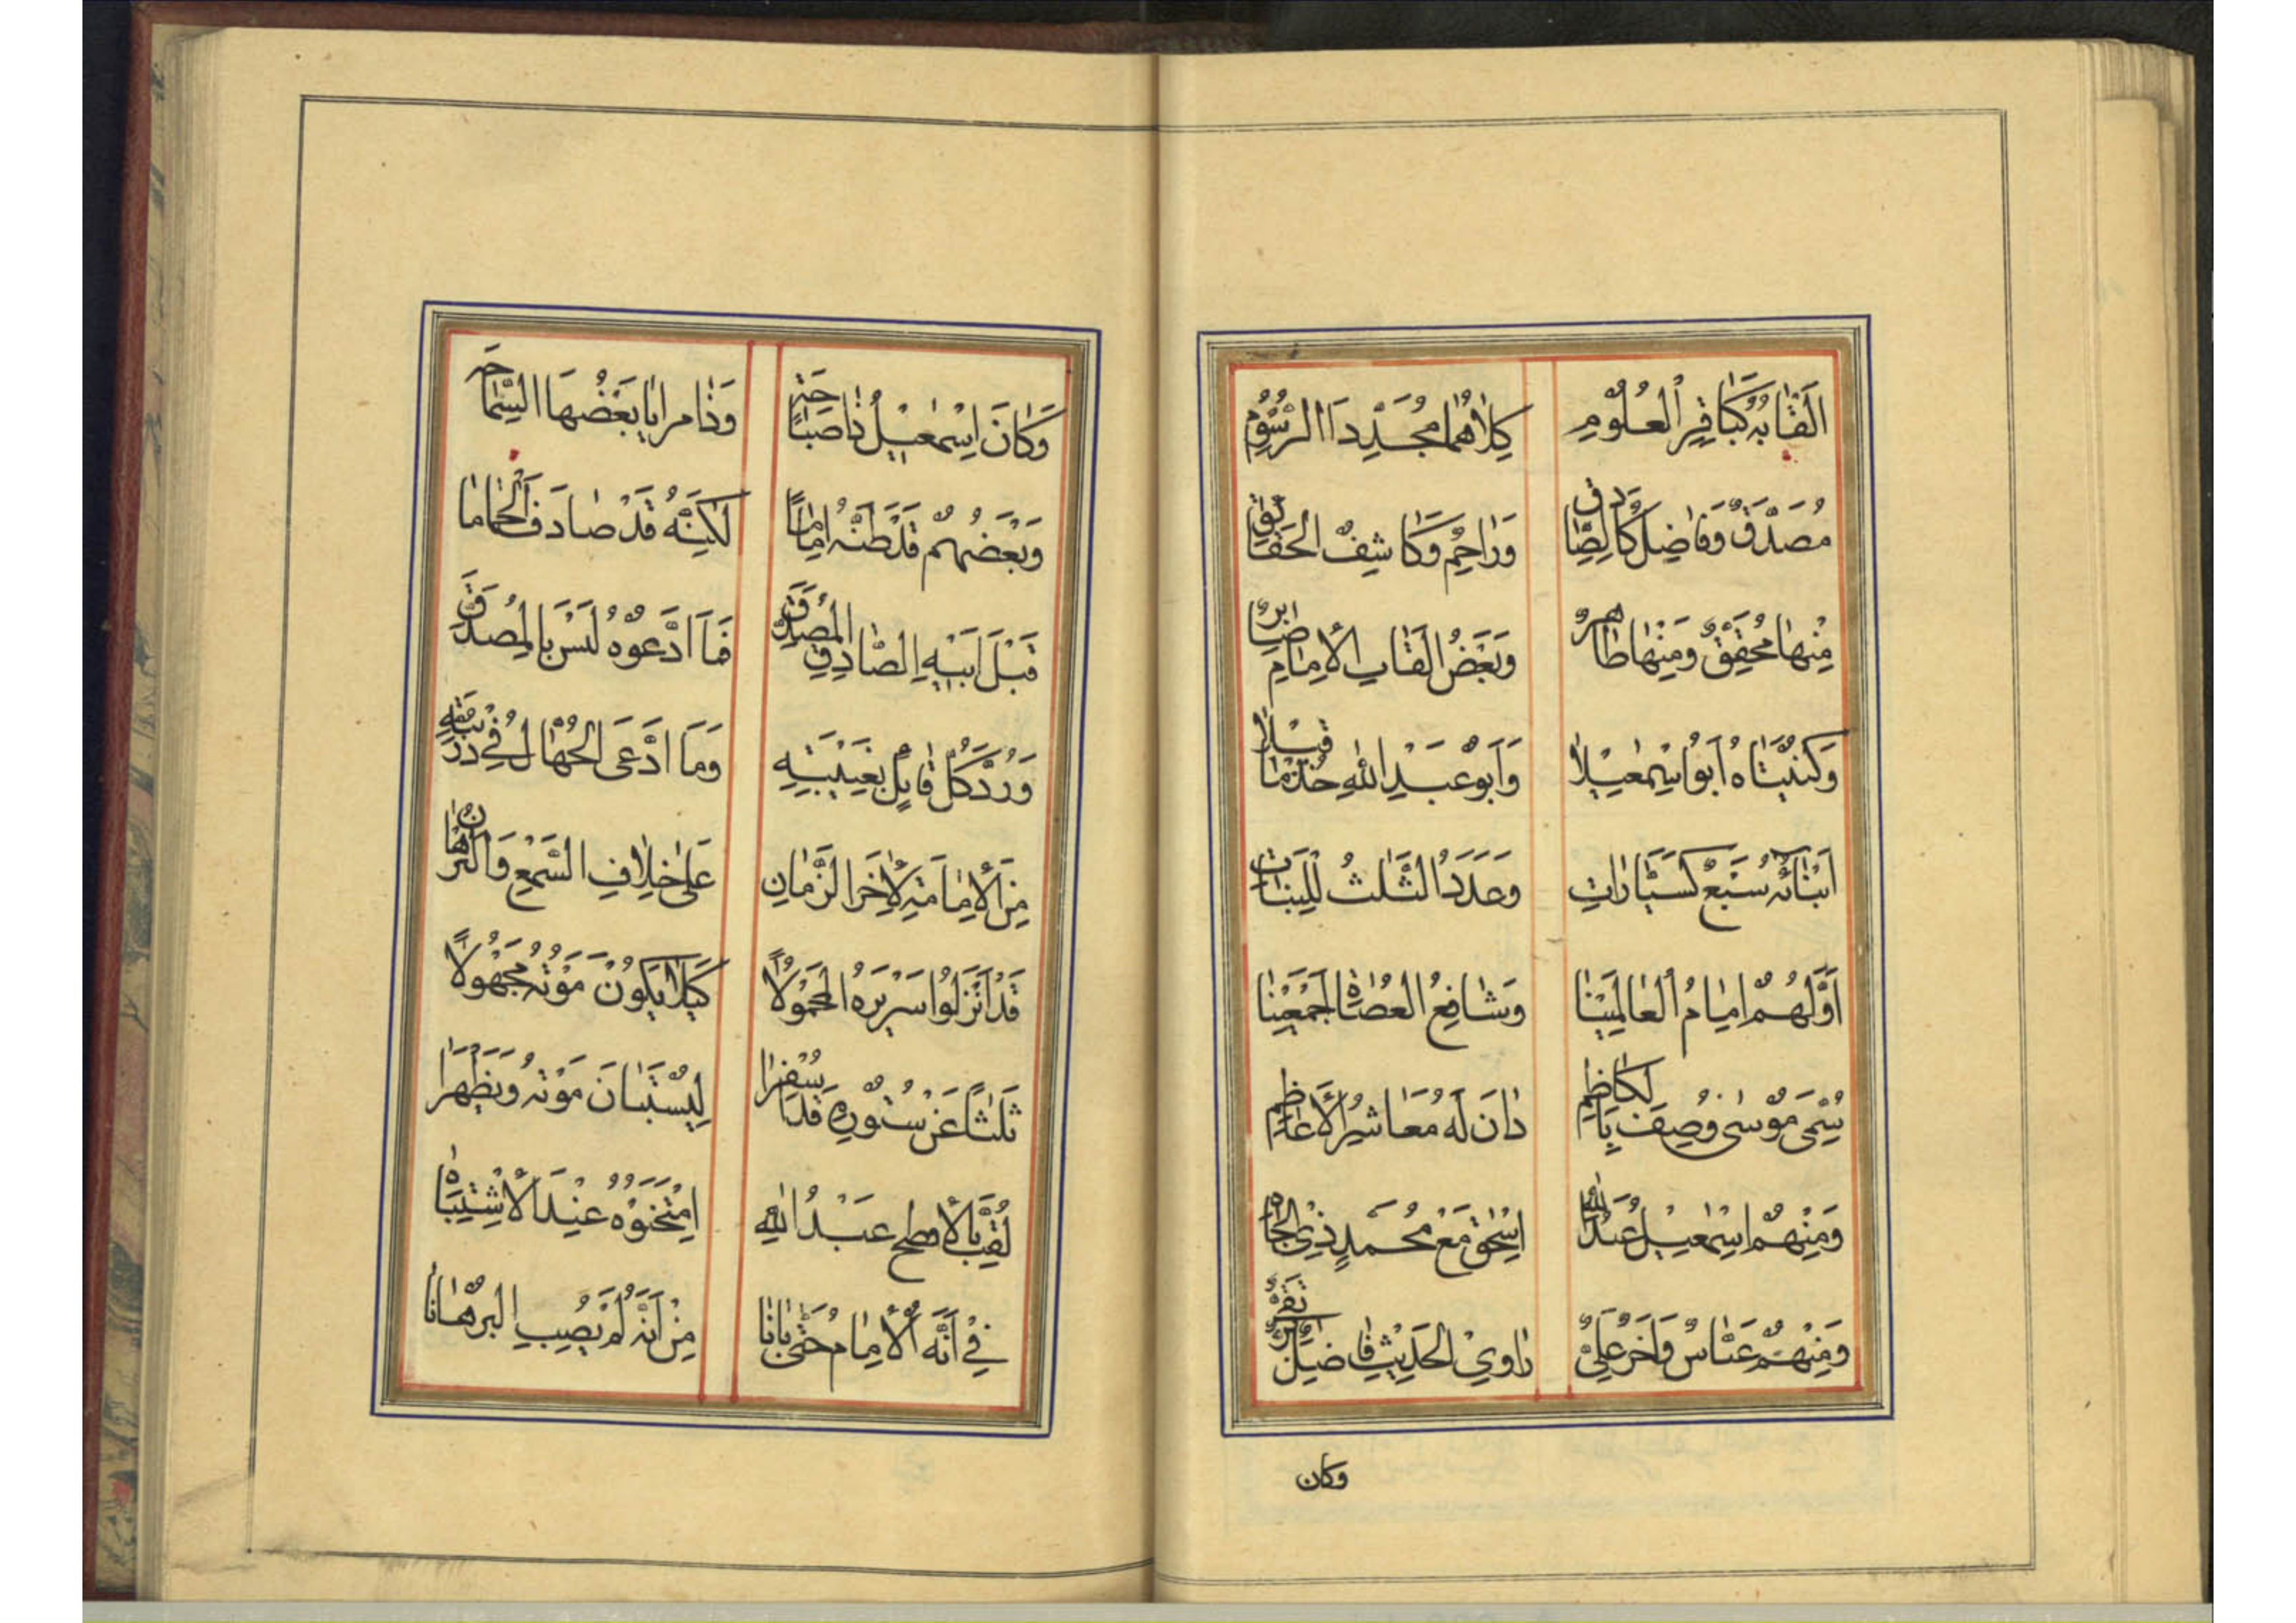 اَلْقَابُهُ كَبَاقِرِ الْعُلُوْمِ كِلَاهُمَا مُجَدِّدَا الرُّسُوْمِ
مُصَدَّقٌ وَفَاضِلٌ كَالصَّادِقِ وَرَاحِمٌ وَكَاشِفُ الْحَقَائِقِ
مِنْهَا مُحَقِّقٌ وَمِنْهَا طَاهِرٌ وَبَعْضُ اَلْقَابِ الْاِمَامِ صَابِرٌ
وَكُنْيَتَاهُ اَبُو اسْمٰعِيْلَا وَاَبُوْ عَبْدِ اللّٰهِ خُذْ مَا قِيْلَا
اَبْنَائُهُ سَبْعٌ كَسَيَّارَاتِ وَعَدَدُ الثَّلٰثِ لِلْبَنَاتِ
اَوَّلُهُمْ اِمَامُ الْعَالَمِيْنَا وَشَافِعُ الْعُصَاةِ اَجْمَعِيْنَا
سُمِّيَ مُوْسٰى وُصِفَ بِالْكَاظِمِ دَانَ لَهُ مَعَاشِرُ الْاَعَاظِمِ
وَمِنْهُمْ اِسْمٰعِيْلُ عَبْدُ اللّٰهِ اِسْحٰقُ مَعْ مُحَمَّدٍ ذِي الْجَاهِ
وَمِنْهُمْ عَبَّاسٌ وَاٰخَرُ عَلِيٌّ رَاوِي الْحَدِيْثِ فَاضِلٌ
وكان
وَكَانَ اِسْمٰعِيْلُ ذَا صَبَاحَةٍ وَذَا مَرَايَا بَعْضُهَا السَّمَاحَه
وَبَعْضُهُمْ قَدْ ظَنَّهُ اِمَامًا لٰكِنَّهُ قَدْ صَادَفَ الْحِمَامَا
قَبْلَ اَبِيْهِ الصَّادِقِ الْمُصَدَّقِ فَمَا ادَّعَوْهُ لَيْسَ بِالْمُصَدَّقِ
وَرُدَّ كُلُّ قَايِلٍ بِغَيْبَتِهِ وَمَا ادَّعَى الْجُهَّالُ فِي
مِنَ الْاِمَامَةِ لِاٰخَرِ الزَّمَانِ عَلٰى خِلَافِ السَّمْعِ وَالْبُرْهَانِ
قَدْ اَنْزَلُوا سَرِيْرَهُ الْمَحْمُوْلَا كَيْلَا يَكُوْنَ مَوْتُهُ مَجْهُوْلًا
ثَلٰثًا عَنْ سُتُوْرِهِ قَدْ سَفَرَا لِيُسْتَبَانَ مَوْتُهُ وَيَظْهَرَا
لُقِّبَ بِالْاَفْطَحِ عَبْدُ اللّٰهِ اِمْتَحَنُوْهُ عِنْدَ الْاِشْتِبَاهِ
فِيْ اَنَّهُ الْاِمَامُ حَتّٰى بَانَا مِنْ اَنَّهُ لَمْ يُصِبِ الْبُرْهَانَا